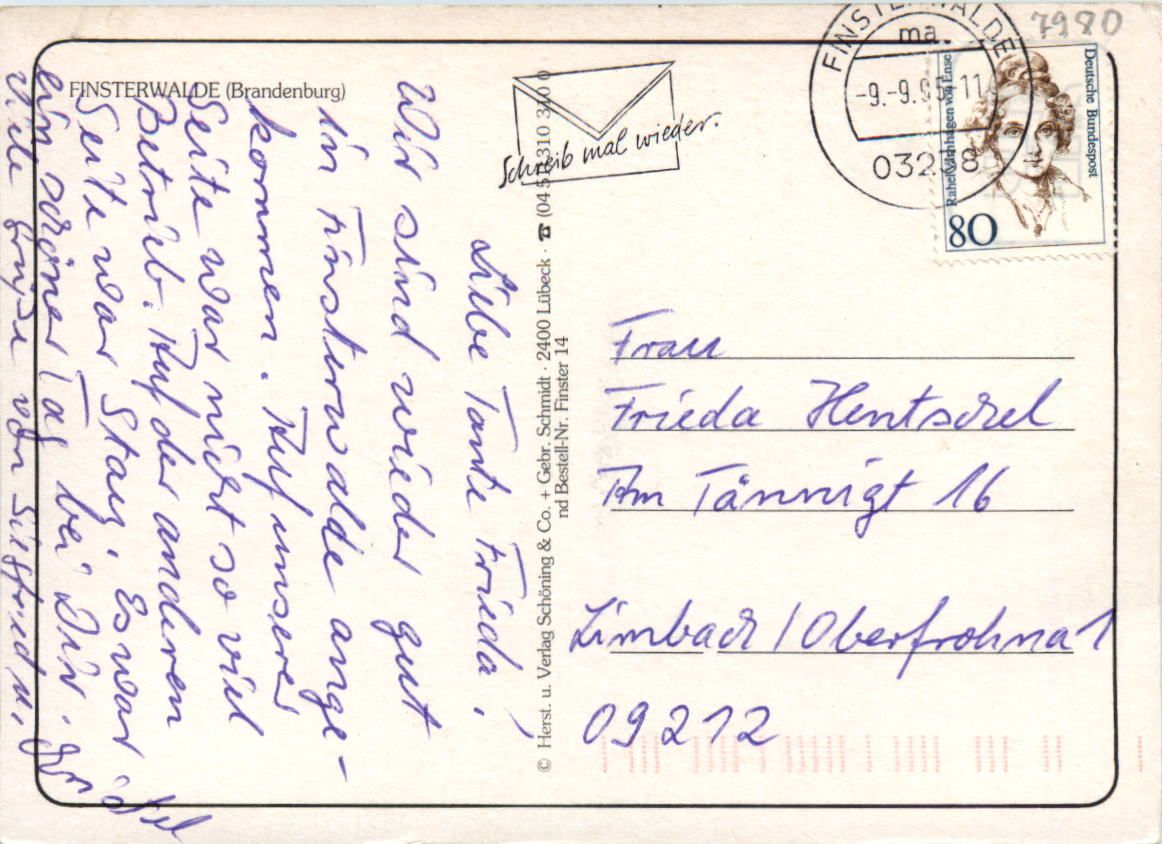 FINSTERWALDE (Brandenburg)
Liebe Tante Frieda,
Wir sind wieder gut
in Finsterwalde ange-
kommen. Auf unserer
Seite war nicht so viel
Betrieb. Auf der anderen
Seite war Stau. Es war
ein schöner Tag bei Dir.
Viele Grüße von Siegfried u.
© Herst. u. Verlag Schöning & Co. + Gebr. Schmidt · 2400 Lübeck · ☎ (04 51) 310 310 0
nd Bestell-Nr. Finster 14
Schreib mal wieder.
FINSTERWALDE
ma
-9.-9.95-11
03238
7980
Deutsche Bundespost
Rahel Varnhagen von Ense
80
Frau
Frieda Hentschel
Am Tännigt 16
Limbach / Oberfrohna 1
09212